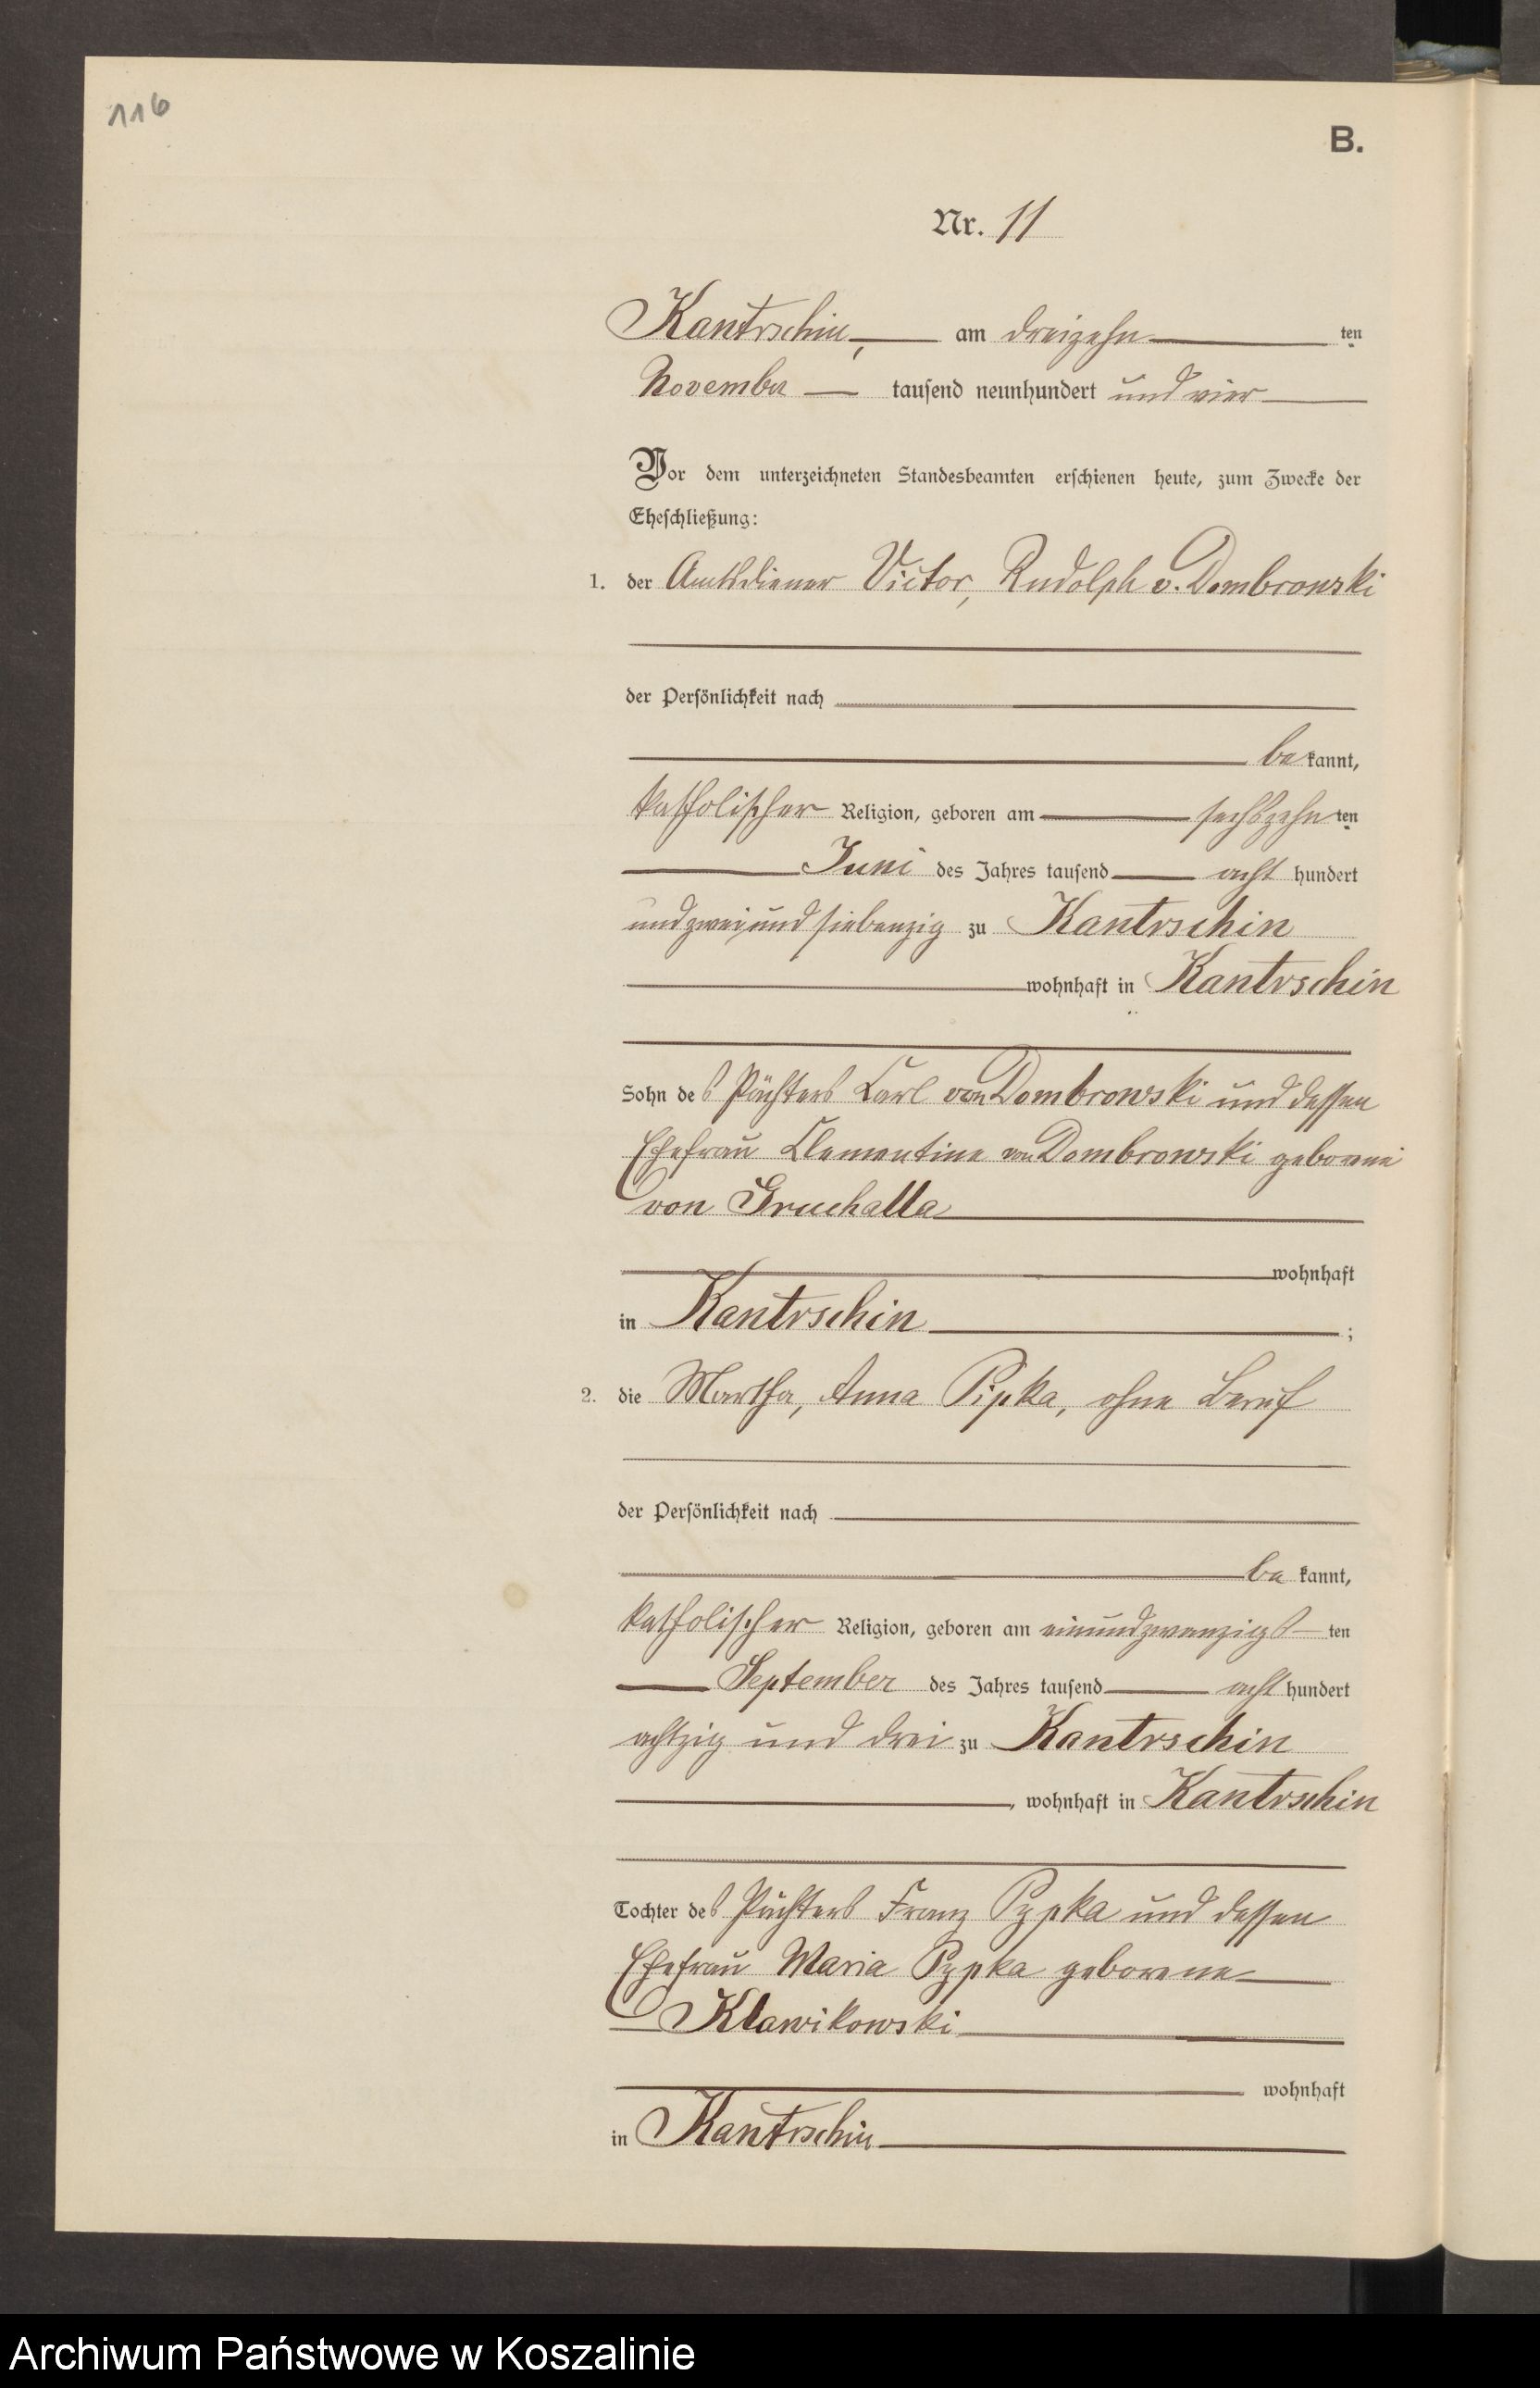 116
B.
Nr. 11
Kantrschin, am dreizehnten
November tausend neunhundert und vier
Vor dem unterzeichneten Standesbeamten erschienen heute, zum Zwecke der
Eheschließung:
1. der Amtsdiener Victor, Rudolph v. Dombrowski
der Persönlichkeit nach
bekannt,
katholischer Religion, geboren am sechszehnten
Juni des Jahres tausend acht hundert
und zwei und siebenzig zu Kantrschin
wohnhaft in Kantrschin
Sohn des Pächters Carl von Dombrowski und dessen
Ehefrau Clementine von Dombrowski geborene
von Gruchalla
wohnhaft
in Kantrschin ;
2. die Martha, Anna Pipka, ohne Beruf
der Persönlichkeit nach
bekannt,
katholischer Religion, geboren am einundzwanzigsten
September des Jahres tausend acht hundert
achtzig und drei zu Kantrschin
, wohnhaft in Kantrschin
Tochter des Pächters Franz Pypka und dessen
Ehefrau Maria Pypka geborene
Klawikowski
wohnhaft
in Kantrschin
Archiwum Państwowe w Koszalinie